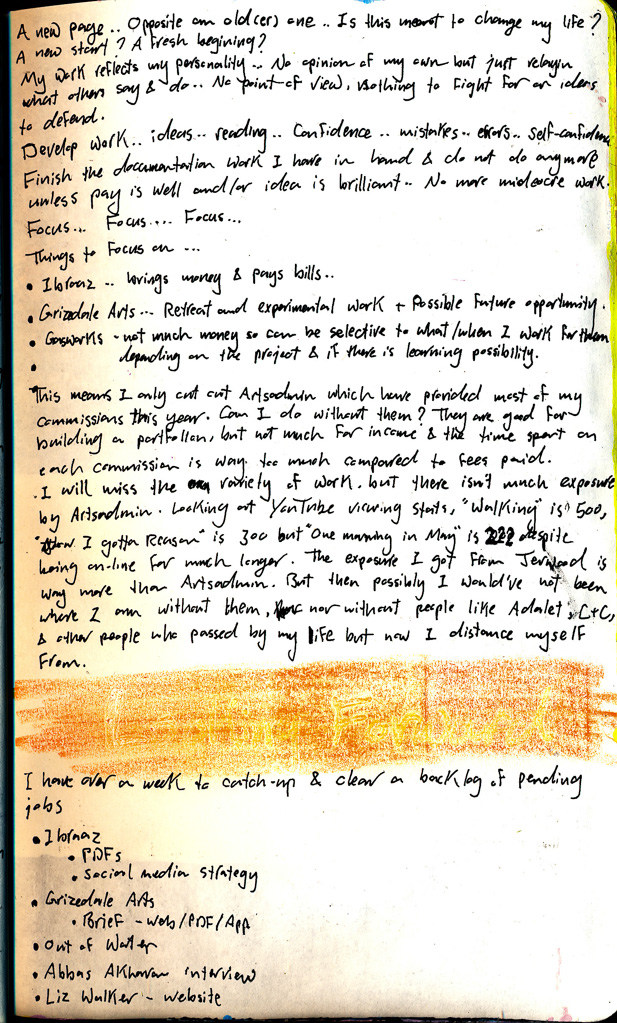 A new page .. Opposite an old(er) one .. Is this meant to change my life ?
A new start ? A fresh begining ?
My work reflects my personality... No opinion of my own but just relayin
what others say & do .. No point of view, Nothing to fight for or ideas
to defend.
Develop work.. ideas.. reading.. Confidence .. mistakes.. errors.. self-confidence
Finish the documentation work I have in hand & do not do anymore
unless pay is well and/or idea is brilliant.. No more mideocre work.
Focus... Focus.... Focus...
Things to Focus on ...
• Ibraaz .. brings money & pays bills..
• Grizedale Arts ... Retreat and experimental work + Possible future opportunity.
• Gasworks - not much money so can be selective to what/when I work for them
depending on the project & if there is learning possibility.
•
This means I only cut out Artsadmin which have provided most of my
commissions this year. Can I do without them? They are good for
building a portfolio, but not much for income & the time spent on
each commission is way too much compared to fees paid.
. I will miss the variety of work. but there isn't much exposure
by Artsadmin. Looking at YouTube viewing stats, "Walking" is 500,
I gotta Reason" is 300 but "One morning in May" is 222 despite
being on-line for much longer. The exposure I got from Jerwood is
way more than Artsadmin. But then possibly I would've not been
where I am without them, nor without people like Adalet, C+C,
& other people who passed by my life but now I distance myself
from.
Forward
I have over a week to catch-up & clear a backlog of pending
jobs
• Ibraaz
• PDFs
• Social media strategy
• Grizedale Arts
• Brief - web/PDF/App
• Out of Water
• Abbas Akhavan interview
• Liz Walker - website